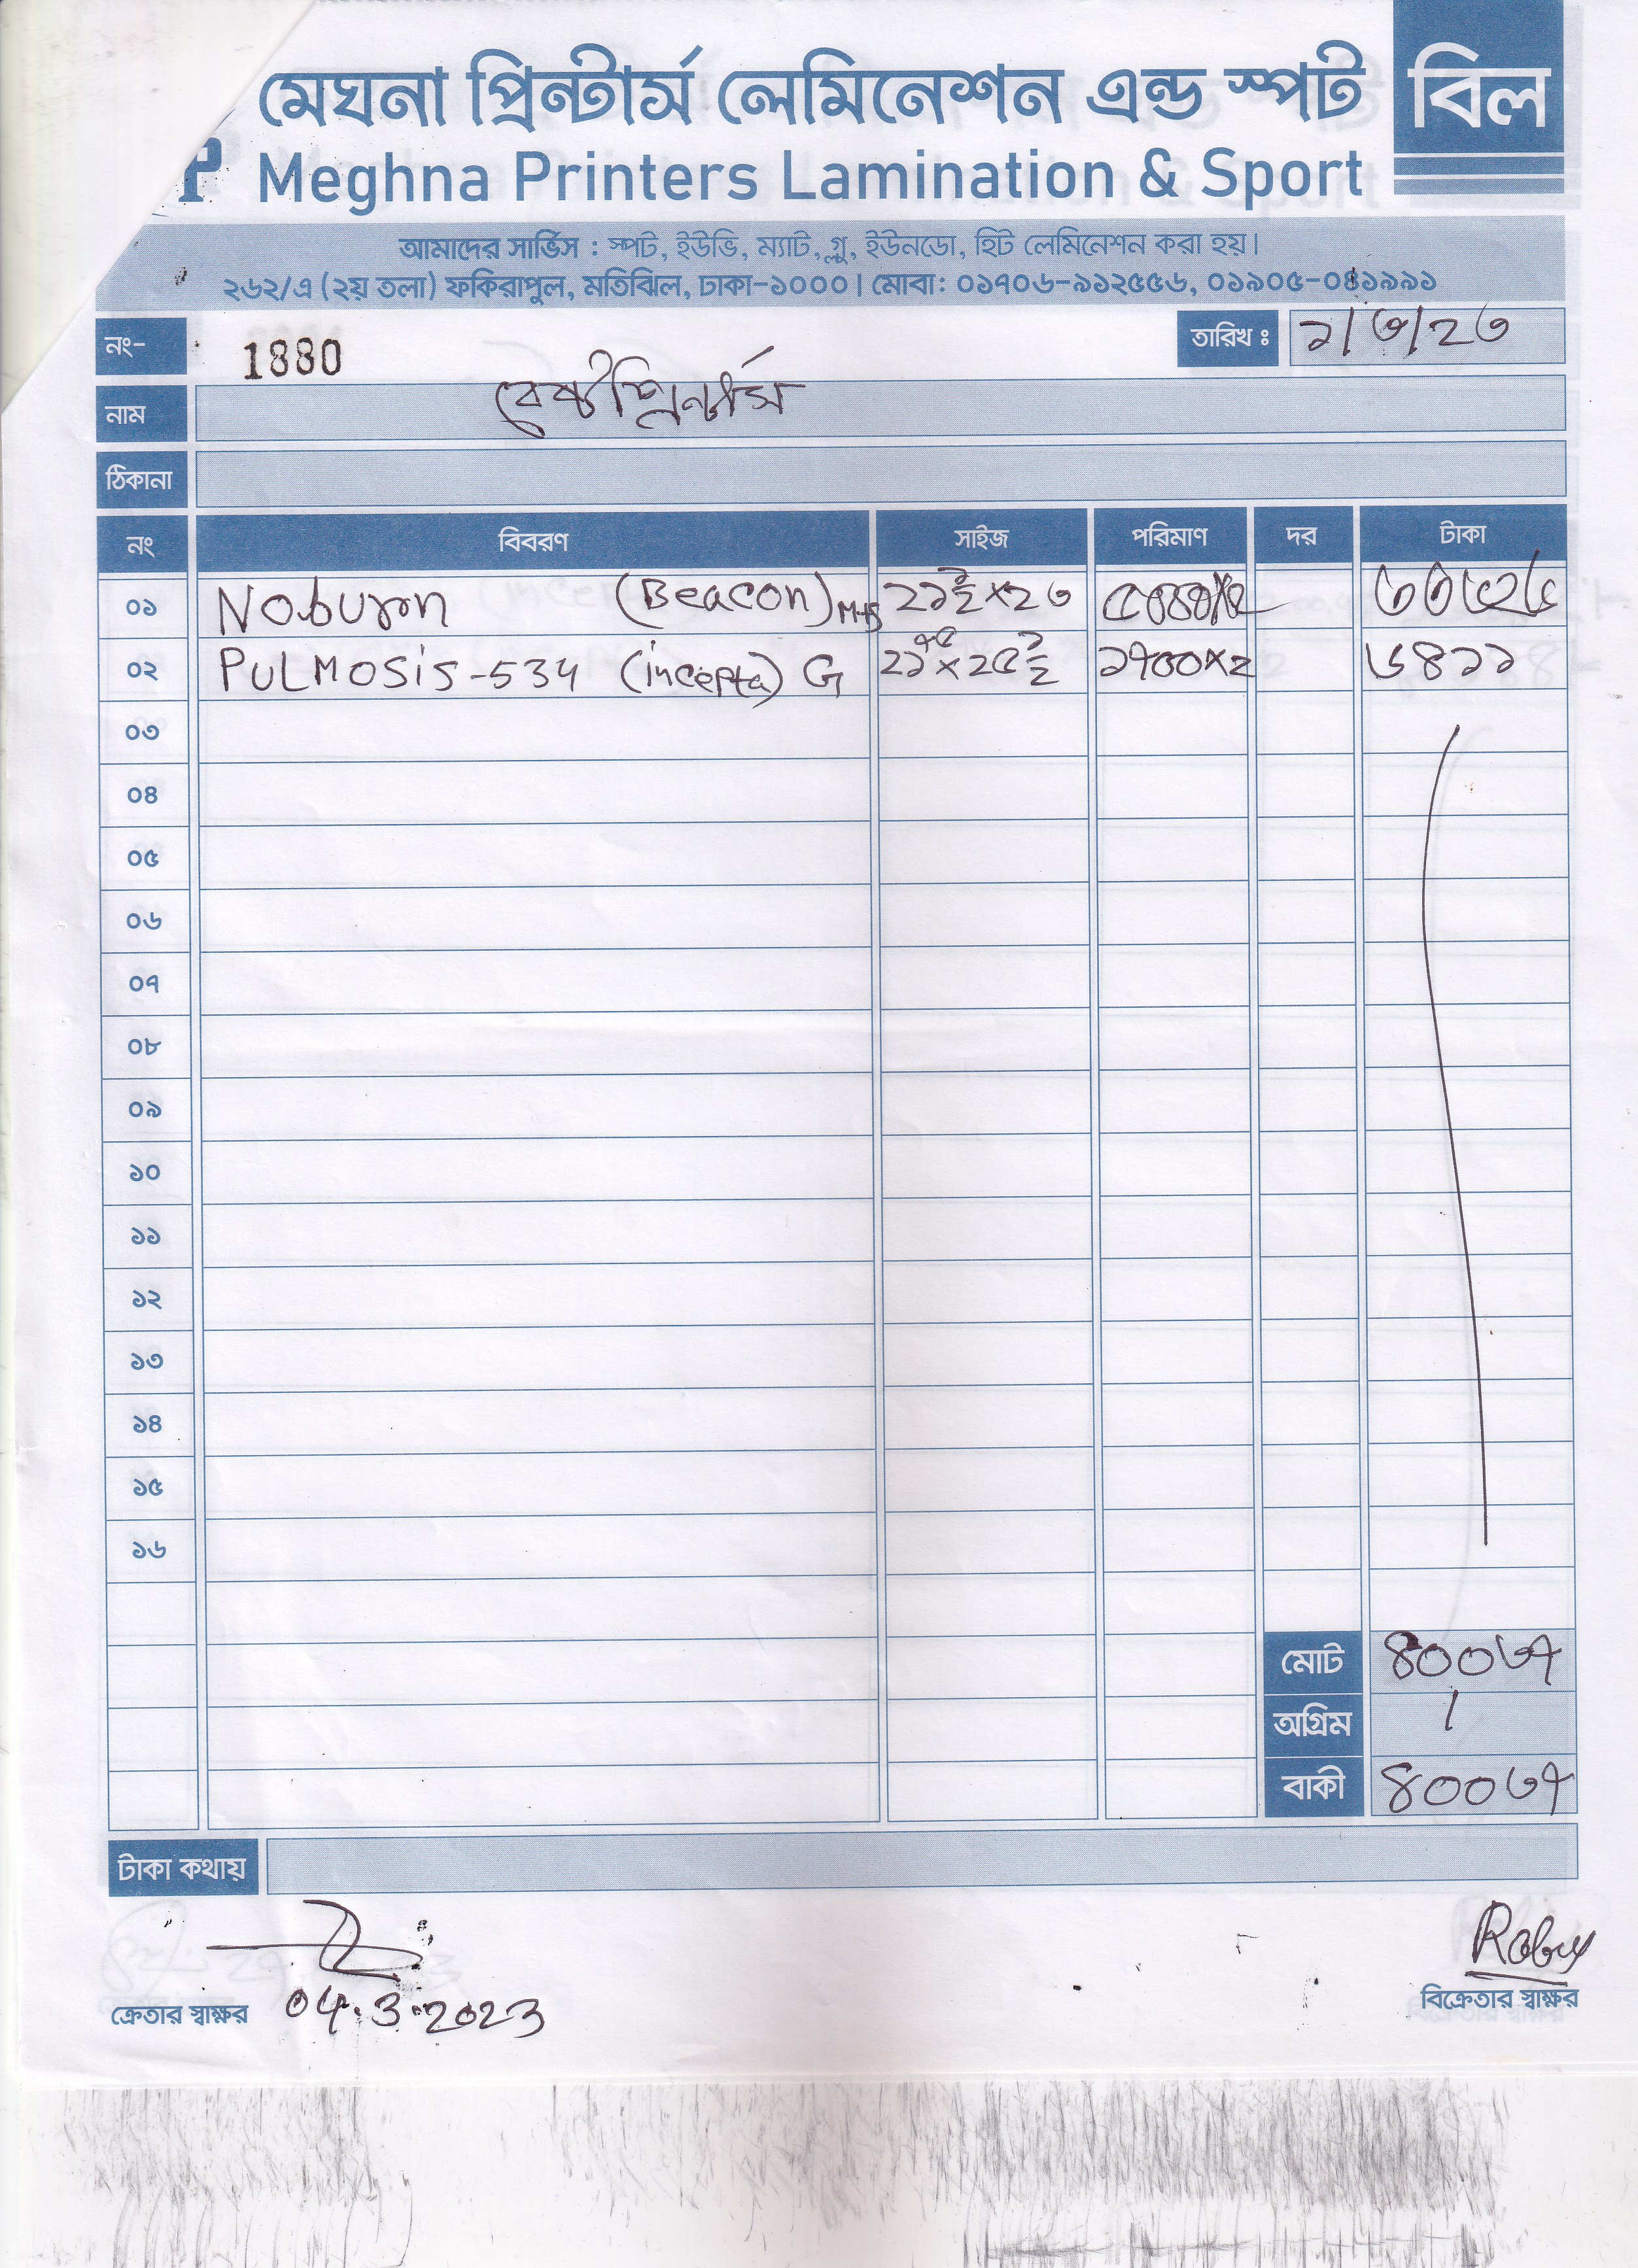 মেঘনা প্রিন্টার্স লেমিনেশন এন্ড স্পট বিল
Meghna Printers Lamination & Sport
আমাদের সার্ভিস : স্পট, ইউভি, ম্যাট, গ্লু, ইউনডো, হিট লেমিনেশন করা হয়।
২৬২/এ (২য় তলা) ফকিরাপুল, মতিঝিল, ঢাকা-১০০০। মোবা: ০১৭০৬-৯১২৫৫৬, ০১৯০৫-০৪১৯৯১
নং- 1880 তারিখ ঃ ১/৩/২৩
নাম বেষ্ট প্রিন্টার্স
ঠিকানা
নং বিবরণ সাইজ পরিমাণ দর টাকা
০১ Noburn (Beacon) M+S ২১ ১/২ × ২৩ ৩৩৬২৬
০২ PULMOSIS-534 (incepta) G ২১ ৭৫ × ২৫ ১/২ ১৭০০×২ ৬৪১১
০৩
০৪
০৫
০৬
০৭
০৮
০৯
১০
১১
১২
১৩
১৪
১৫
১৬
মোট ৪০০৩৭
অগ্রিম /
বাকী ৪০০৩৭
টাকা কথায়
ক্রেতার স্বাক্ষর 04.3.2023
বিক্রেতার স্বাক্ষর